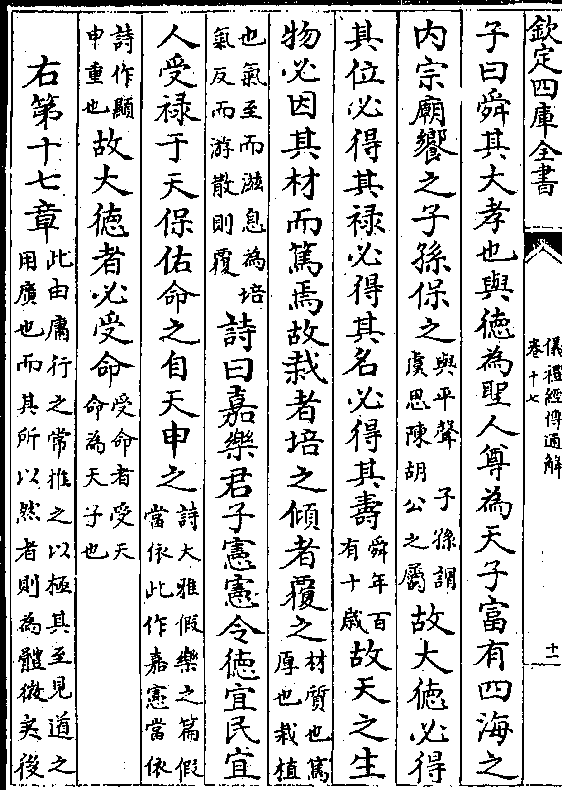 欽定四庫全書
儀禮經傳通解
卷十七
十一
子曰舜其大孝也與德為聖人尊為天子富有四海之
内宗廟饗之子孫保之
與平聲 子孫謂
虞思陳胡公之屬
故大德必得
其位必得其禄必得其名必得其壽
舜年百
有十歲
故天之生
物必因其材而篤焉故栽者培之傾者覆之
材質也篤
厚也栽植
也氣至而滋息為培
氣反而游散則覆
詩曰嘉樂君子憲憲令德宜民宜
人受禄于天保佑命之自天申之
詩大雅假樂之篇假
當依此作嘉憲當依
詩作顯
申重也
故大德者必受命
受命者受天
命為天子也
右第十七章
此由庸行之常推之以極其至見道之
用廣也而其所以然者則為體微矣後